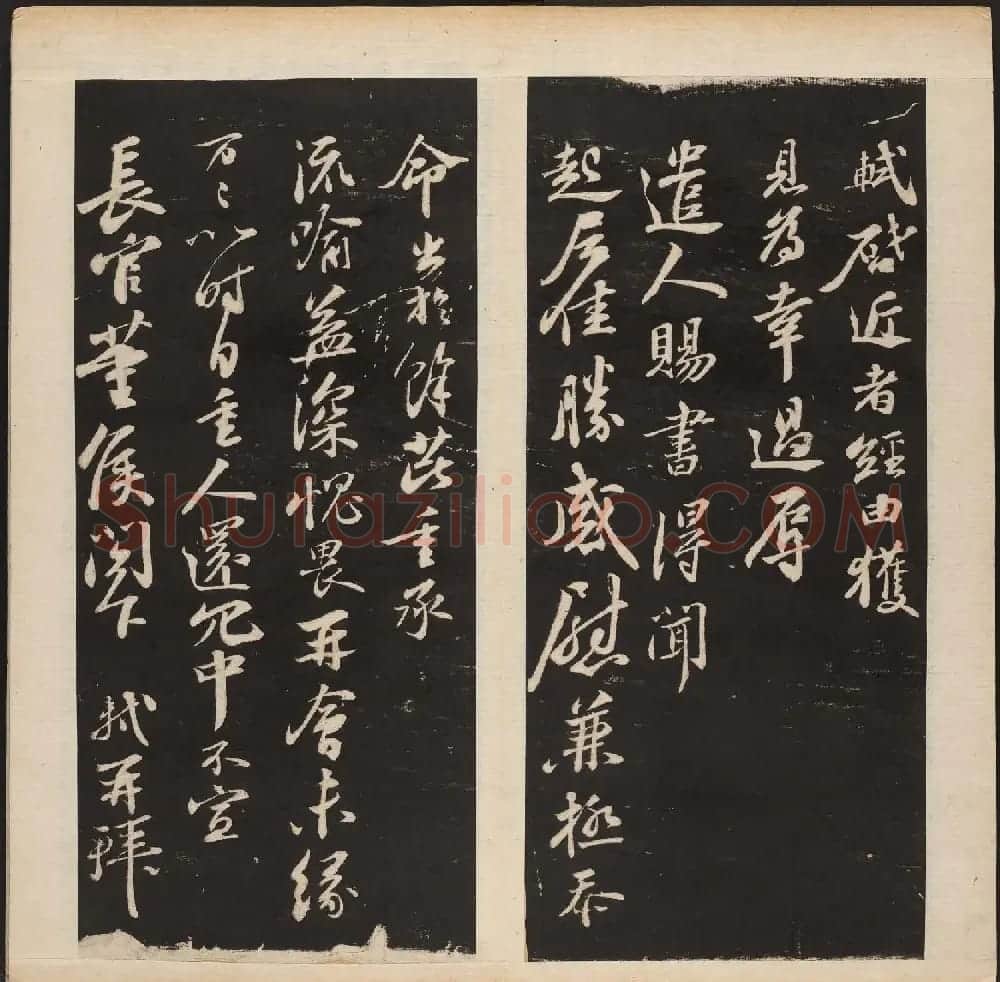 軾啓近者經由獲
見為幸過辱
遣人賜書得聞
起居佳勝感慰兼極忝
命出於餘芘重承
流喻益深愧畏再會未緣
万〻以時自重人還冗中不宣
長官董侯閣下 軾再拜
Shufaziliao.COM